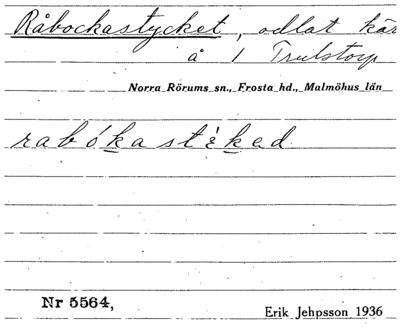 Råbockastycket, odlat kär
å 1 Trulstorp
Norra Rörums sn., Frosta hd., Malmöhus län
Nr 5564,
Erik Jehpsson 1936